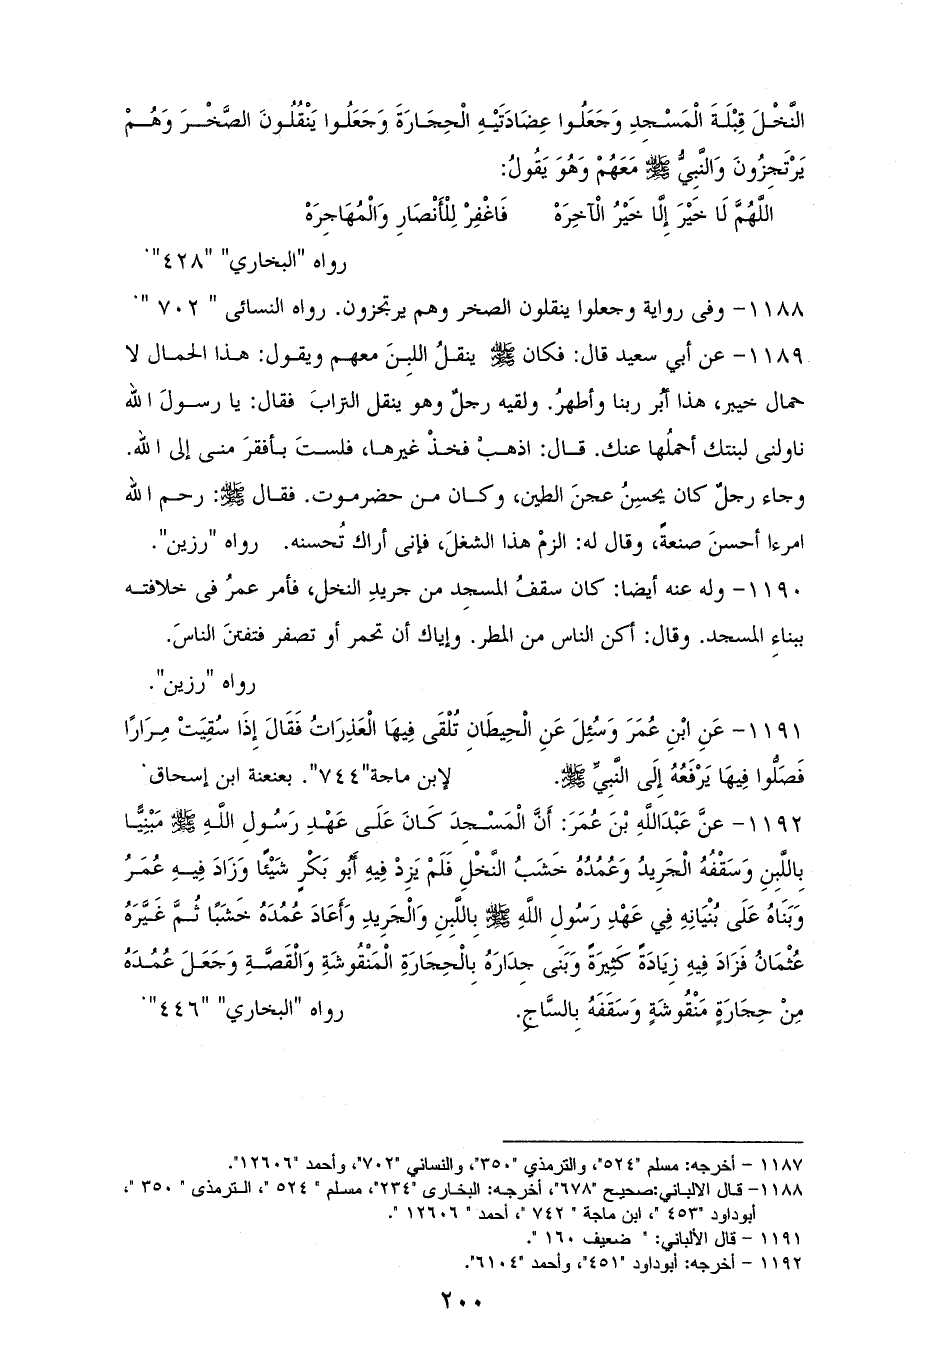 النَّخْلَ قِبْلَةَ الْمَسْجِدِ وَجَعَلُوا عِضَادَتَيْهِ الْحِجَارَةَ وَجَعَلُوا يَنْقُلُونَ الصَّخْرَ وَهُمْ
يَرْتَجِزُونَ وَالنَّبِيُّ ﷺ مَعَهُمْ وَهُوَ يَقُولُ:
اللَّهُمَّ لَا خَيْرَ إِلَّا خَيْرُ الْآخِرَهْ فَاغْفِرْ لِلْأَنْصَارِ وَالْمُهَاجِرَهْ
رواه "البخاري" "٤٢٨".
١١٨٨- وفى رواية وجعلوا ينقلون الصخر وهم يرتجزون. رواه النسائى " ٧٠٢ ".
١١٨٩- عن أبي سعيد قال: فكان ﷺ ينقلُ اللبنَ معهم ويقول: هذا الحمال لا
حمال خيبر، هذا أبُر ربنا وأطهرُ. ولقيه رجلٌ وهو ينقل الترابَ فقال: يا رسولَ الله
ناولنى لبنتك أحملُها عنك. قال: اذهبْ فخذْ غيرها، فلستَ بأفقرَ منى إلى الله.
وجاء رجلٌ كان يحسِنُ عجنَ الطين، وكان من حضرموت. فقال ﷺ: رحم الله
امرءا أحسنَ صنعةً، وقال له: الزمْ هذا الشغلَ، فإنى أراك تُحسنه. رواه "رزين".
١١٩٠- وله عنه أيضا: كان سقفُ المسجدِ من جريدِ النخل، فأمر عمرُ فى خلافته
ببناءِ المسجد. وقال: أكن الناس من المطر. وإياك أن تحمر أو تصفر فتفتنَ الناسَ.
رواه "رزين".
١١٩١- عَنِ ابْنِ عُمَرَ وَسُئِلَ عَنِ الْحِيطَانِ تُلْقَى فِيهَا الْعَذِرَاتُ فَقَالَ إِذَا سُقِيَتْ مِرَارًا
فَصَلُّوا فِيهَا يَرْفَعُهُ إِلَى النَّبِيِّ ﷺ. لإبن ماجة"٧٤٤". بعنعنة ابن إسحاق.
١١٩٢- عنَّ عَبْدَاللَّهِ بْنَ عُمَرَ: أَنَّ الْمَسْجِدَ كَانَ عَلَى عَهْدِ رَسُولِ اللَّهِ ﷺ مَبْنِيًّا
بِاللَّبِنِ وَسَقْفُهُ الْجَرِيدُ وَعُمُدُهُ خَشَبُ النَّخْلِ فَلَمْ يَزِدْ فِيهِ أَبُو بَكْرٍ شَيْئًا وَزَادَ فِيهِ عُمَرُ
وَبَنَاهُ عَلَى بُنْيَانِهِ فِي عَهْدِ رَسُولِ اللَّهِ ﷺ بِاللَّبِنِ وَالْجَرِيدِ وَأَعَادَ عُمُدَهُ خَشَبًا ثُمَّ غَيَّرَهُ
عُثْمَانُ فَزَادَ فِيهِ زِيَادَةً كَثِيرَةً وَبَنَى جِدَارَهُ بِالْحِجَارَةِ الْمَنْقُوشَةِ وَالْقَصَّةِ وَجَعَلَ عُمُدَهُ
مِنْ حِجَارَةٍ مَنْقُوشَةٍ وَسَقَفَهُ بِالسَّاجِ. رواه "البخاري" "٤٤٦".
١١٨٧ - أخرجه: مسلم "٥٢٤"، والترمذي "٣٥٠"، والنسائي "٧٠٢"، وأحمد "١٢٦٠٦".
١١٨٨- قال الالباني:صحيح "٦٧٨"، أخرجه: البخارى "٢٣٤"، مسلم " ٥٢٤ "، الترمذى " ٣٥٠ "،
أبوداود "٤٥٣ "، ابن ماجة " ٧٤٢ "، أحمد " ١٢٦٠٦ ".
١١٩١ - قال الألباني: " ضعيف ١٦٠ ".
١١٩٢ - أخرجه: أبوداود "٤٥١"، وأحمد "٦١٠٤".
٢٠٠